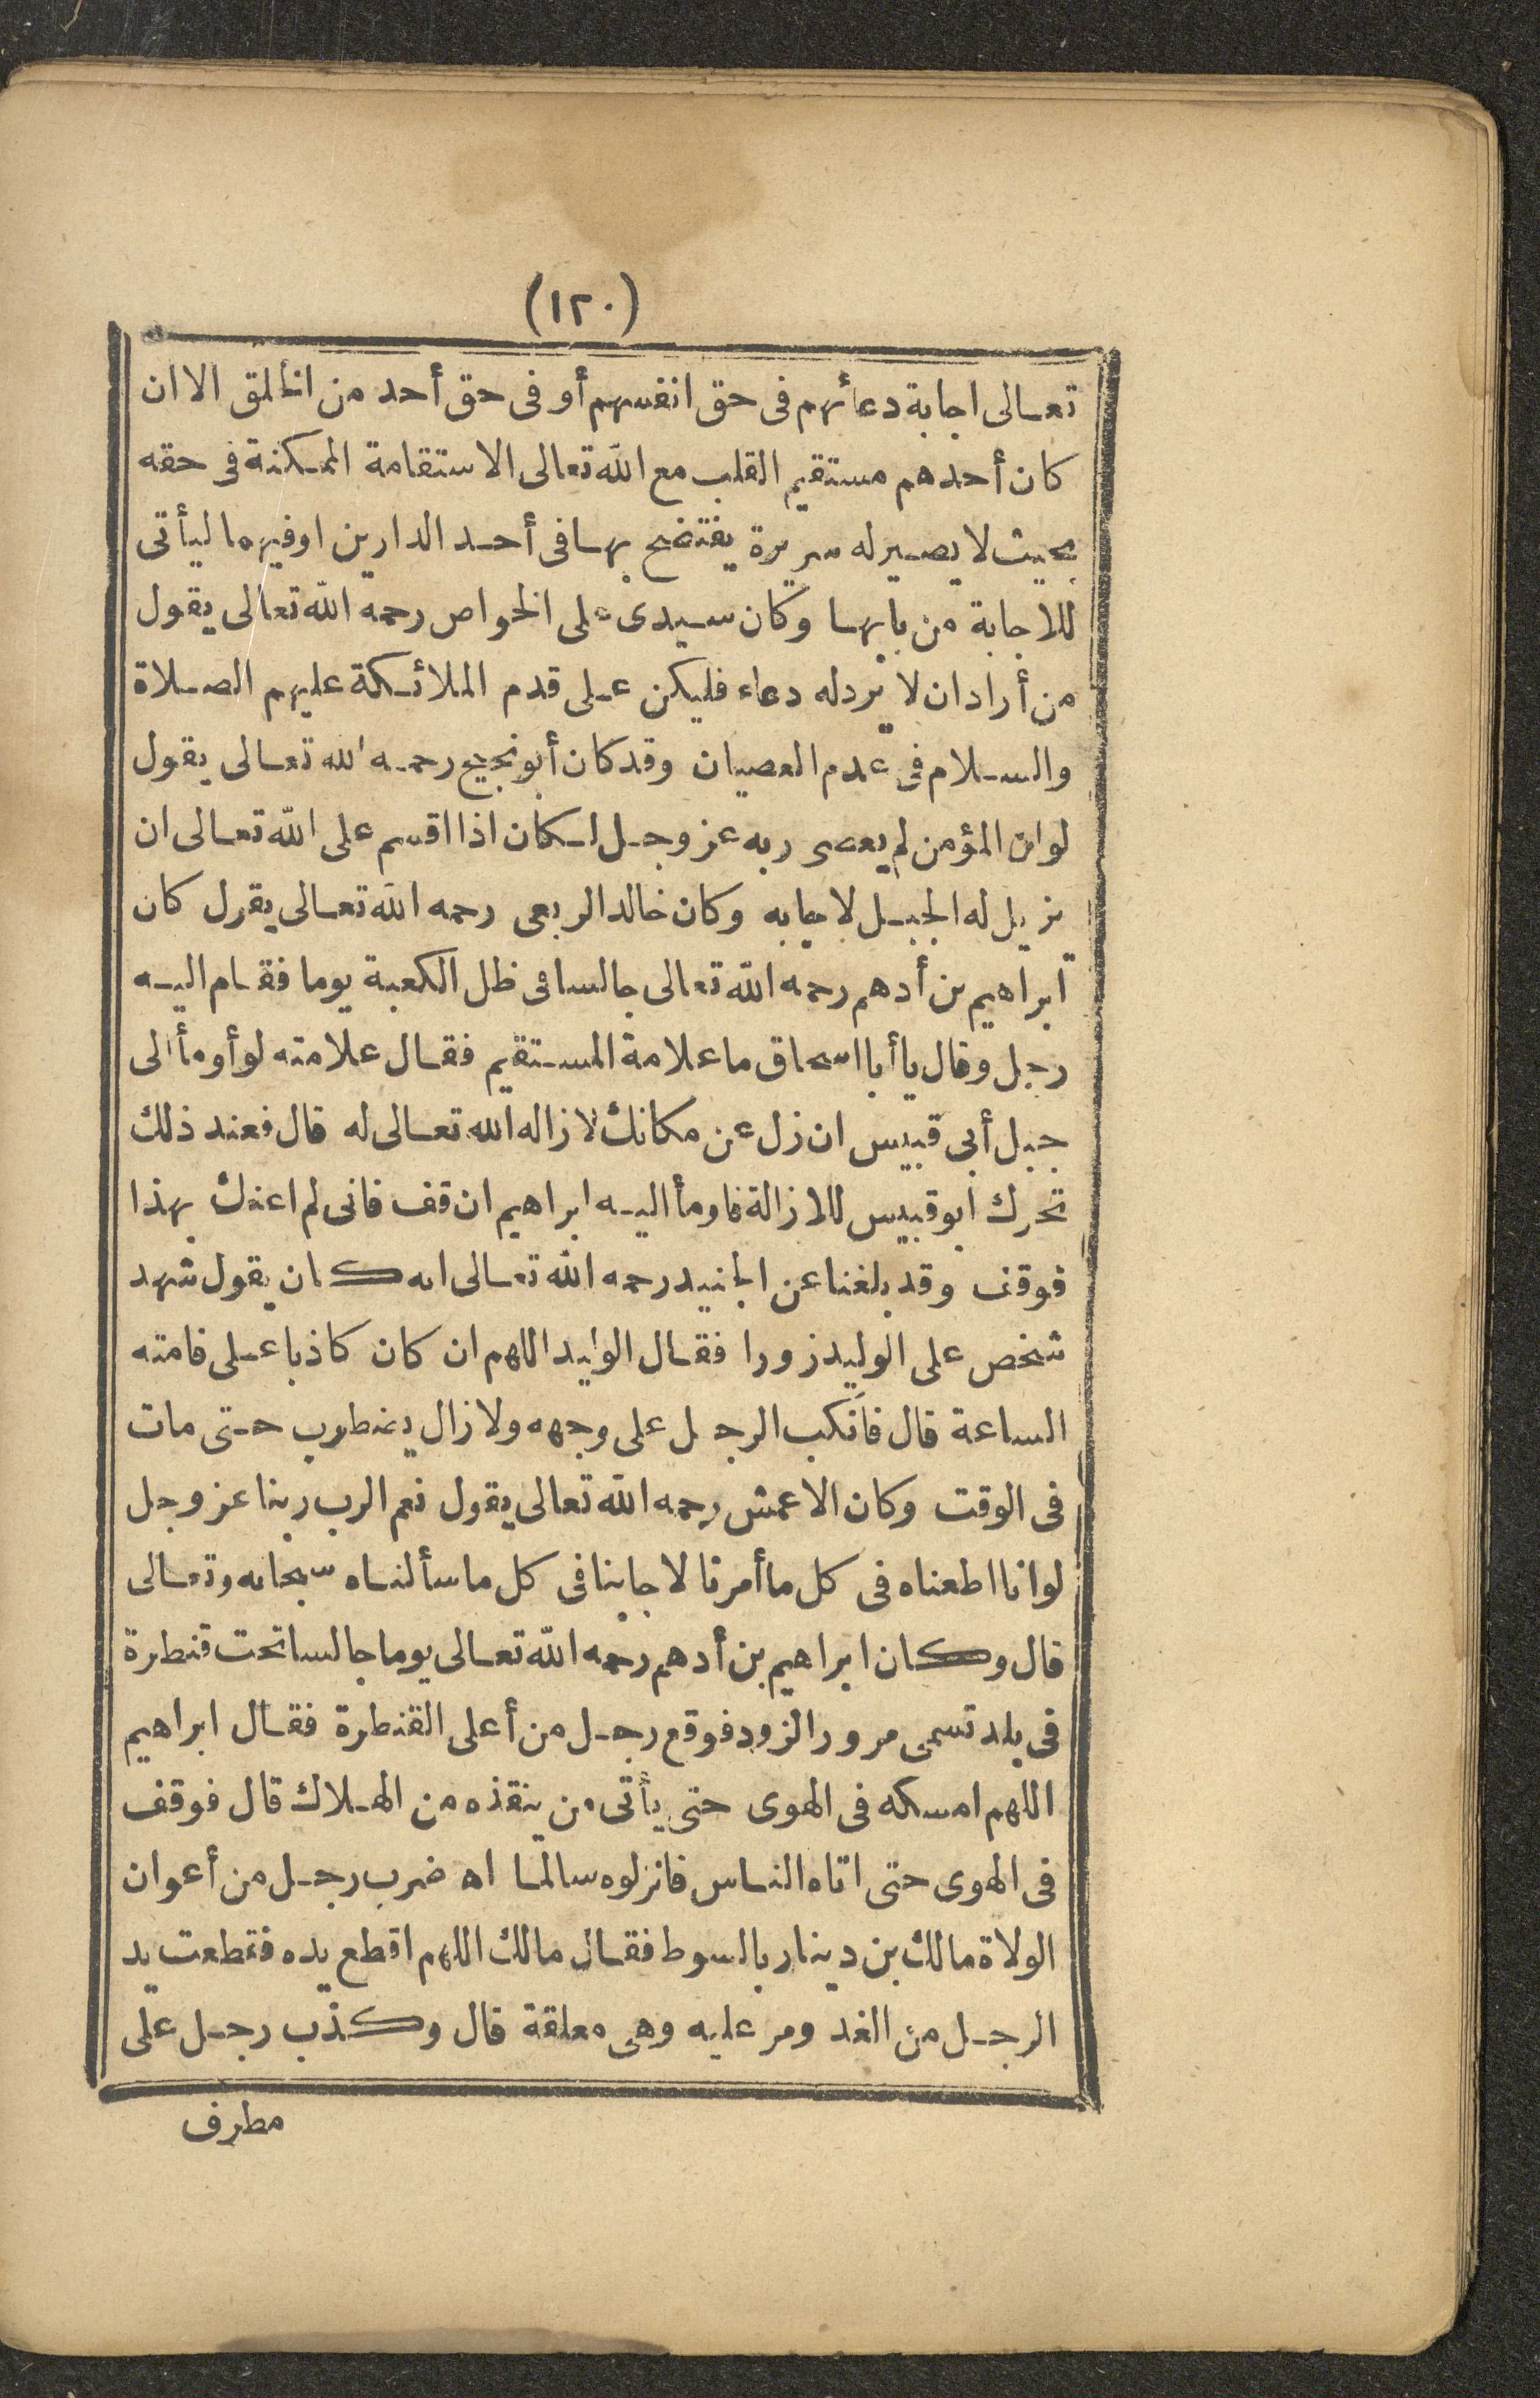 (١٢٠)
تعالى اجابة دعائهم فى حق انفسهم أو فى حق أحد من الخلق الا ان
كان أحدهم مستقيم القلب مع الله تعالى الاستقامة الممكنة فى حقه
بحيث لا يصير له سريرة يفتضح بها فى أحد الدارين او فيهما ليأتى
للاجابة من بابها وكان سيدى على الخواص رحمه الله تعالى يقول
من أراد ان لا يرد له دعاء فليكن على قدم الملائكة عليهم الصلاة
والسلام فى عدم العصيان وقد كان أبو نجيح رحمه الله تعالى يقول
لو ان المؤمن لم يعصى ربه عز وجل لكان اذا اقسم على الله تعالى ان
يزيل له الجبل لاجابه وكان خالد الربعى رحمه الله تعالى يقول كان
ابراهيم بن أدهم رحمه الله تعالى جالسا فى ظل الكعبة يوما فقام اليه
رجل وقال يا أبا اسحاق ما علامة المستقيم فقال علامته لو أومأ الى
جبل أبى قبيس ان زل عن مكانك لازاله الله تعالى له قال فعند ذلك
تحرك ابو قبيس للازالة فاومأ اليه ابراهيم ان قف فانى لم اعنك بهذا
فوقف وقد بلغنا عن الجنيد رحمه الله تعالى انه كان يقول شهد
شخص على الوليد زورا فقال الوليد اللهم ان كان كاذبا على فامته
الساعة قال فانكب الرجل على وجهه ولا زال يضطرب حتى مات
فى الوقت وكان الاعمش رحمه الله تعالى يقول نعم الرب ربنا عز وجل
لو انا اطعناه فى كل ما أمرنا لاجابنا فى كل ما سألناه سبحانه وتعالى
قال وكان ابراهيم بن أدهم رحمه الله تعالى يوما جالسا تحت قنطرة
فى بلد تسمى مرور الزود فوقع رجل من أعلى القنطرة فقال ابراهيم
اللهم امسكه فى الهوى حتى يأتى من ينقذه من الهلاك قال فوقف
فى الهوى حتى اتاه الناس فانزلوه سالما اه ضرب رجل من أعوان
الولاة مالك بن دينار بالسوط فقال مالك اللهم اقطع يده فقطعت يد
الرجل من الغد ومر عليه وهى معلقة قال وكذب رجل على
مطرف